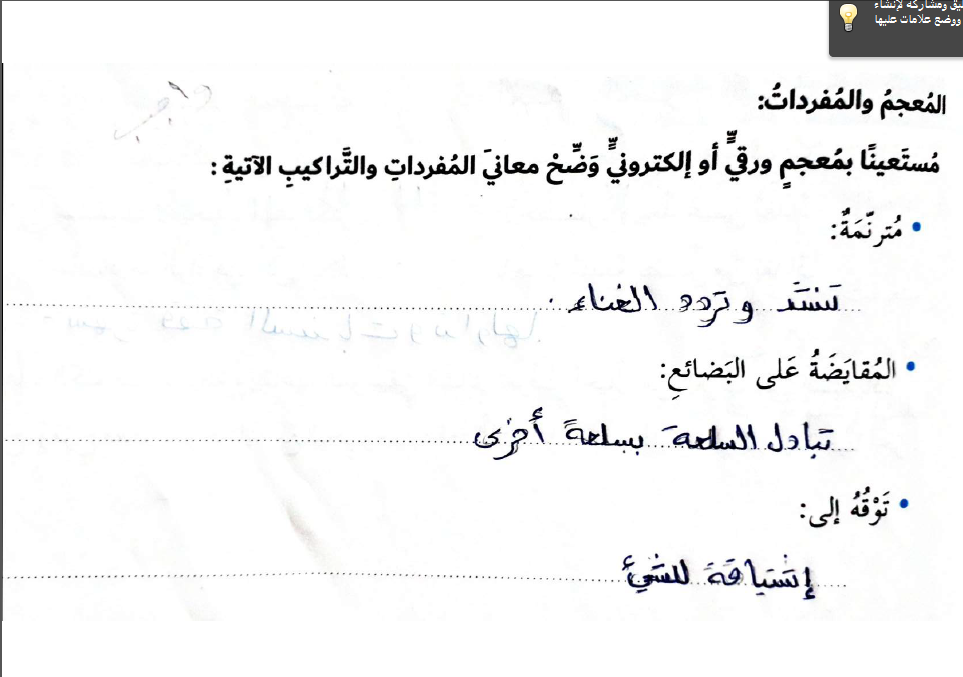 يق ومشاركة لإنشاء
ووضع علامات عليها
المُعجمُ والمُفرداتُ:
مُستَعينًا بمُعجمٍ ورقيٍّ أو إلكترونيٍّ وَضِّحْ معانيَ المُفرداتِ والتَّراكيبِ الآتيةِ:
• مُترنّمَةٌ:
تنشد وتردد الغناء.
• المُقايَضَةُ عَلى البَضائعِ:
تبادل السلعة بسلعة أخرى
• تَوْقُهُ إلى:
إشتياقة للشيء